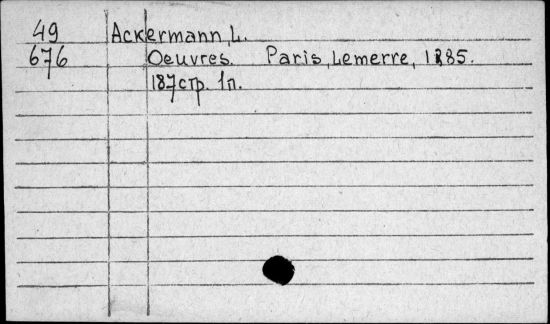 49 Ackermann, L.
676 Oeuvres. Paris, Lemerre, 1885.
187 стр. 1л.